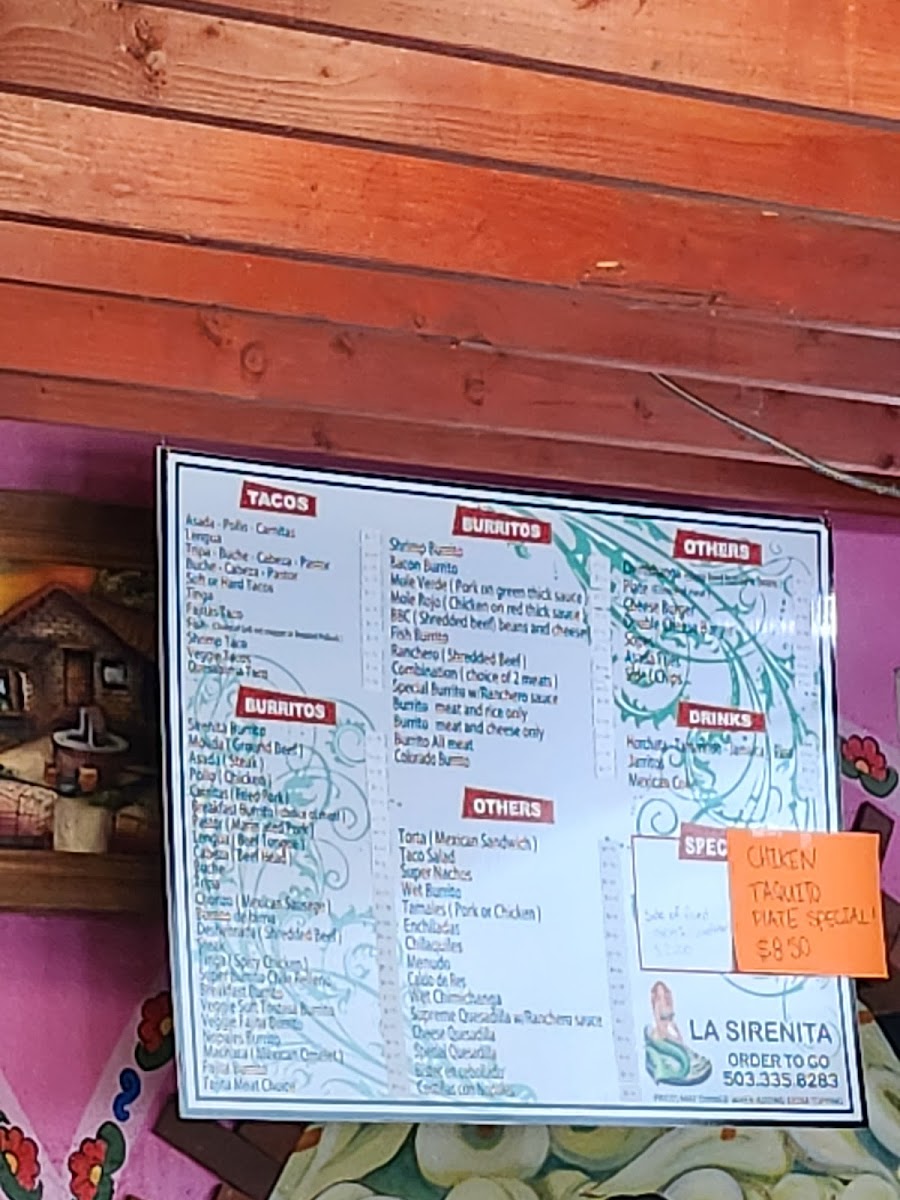 TACOS
Asada - Pollo - Carnitas
Lengua
Tripa - Buche - Cabeza - Pastor
Buche - Cabeza - Pastor
Soft or Hard Tacos
Tinga
Fajitas Taco
Fish
Shrimp Taco
Veggie Tacos
Quesadilla Taco
BURRITOS
Sirenita Burrito
Molida ( Ground Beef )
Asada ( Steak )
Pollo ( Chicken )
Carnitas ( Fried Pork )
Breakfast Burrito ( choice of meat )
Pastor ( Marinated Pork )
Lengua ( Beef Tongue )
Cabeza ( Beef Head )
Buche
Tripa
Chorizo ( Mexican Sausage )
Burrito de birria
Deshebrada ( Shredded Beef )
Steak
Tinga ( Spicy Chicken )
Super burrito Chile Relleno
Breakfast Burrito
Veggie Soft Tostada Burrito
Veggie Fajita Burrito
Nopales Burrito
Machaca ( Mexican Omelet )
Fajita Burrito
Fajita Meat Choice
BURRITOS
Shrimp Burrito
Bacon Burrito
Mole Verde ( Pork on green thick sauce )
Mole Rojo ( Chicken on red thick sauce )
BBC ( Shredded beef) beans and cheese
Fish Burrito
Ranchero ( Shredded Beef )
Combination ( choice of 2 meats )
Special Burrito w/Ranchero sauce
Burrito meat and rice only
Burrito meat and cheese only
Burrito All meat
Colorado Burrito
OTHERS
Torta ( Mexican Sandwich )
Taco Salad
Super Nachos
Wet Burrito
Tamales ( Pork or Chicken )
Enchiladas
Chilaquiles
Menudo
Caldo de Res
Wet Chimichanga
Supreme Quesadilla w/Ranchero sauce
Cheese Quesadilla
Special Quesadilla
Bistec encebollado
Costillas con Nopales
OTHERS
Plate
Cheese Burger
Double Cheese Burger
Sopes
Asada Fries
Side ( Chips
DRINKS
Horchata - Tamarindo - Jamaica
Jarritos
Mexican Coke
SPEC
Side of
CHIKEN
TAQUITO
PLATE SPECIAL!
$8.50
LA SIRENITA
ORDER TO GO
503.335.8283
PRICES MAY CHANGE WHEN ADDING EXTRA TOPPING